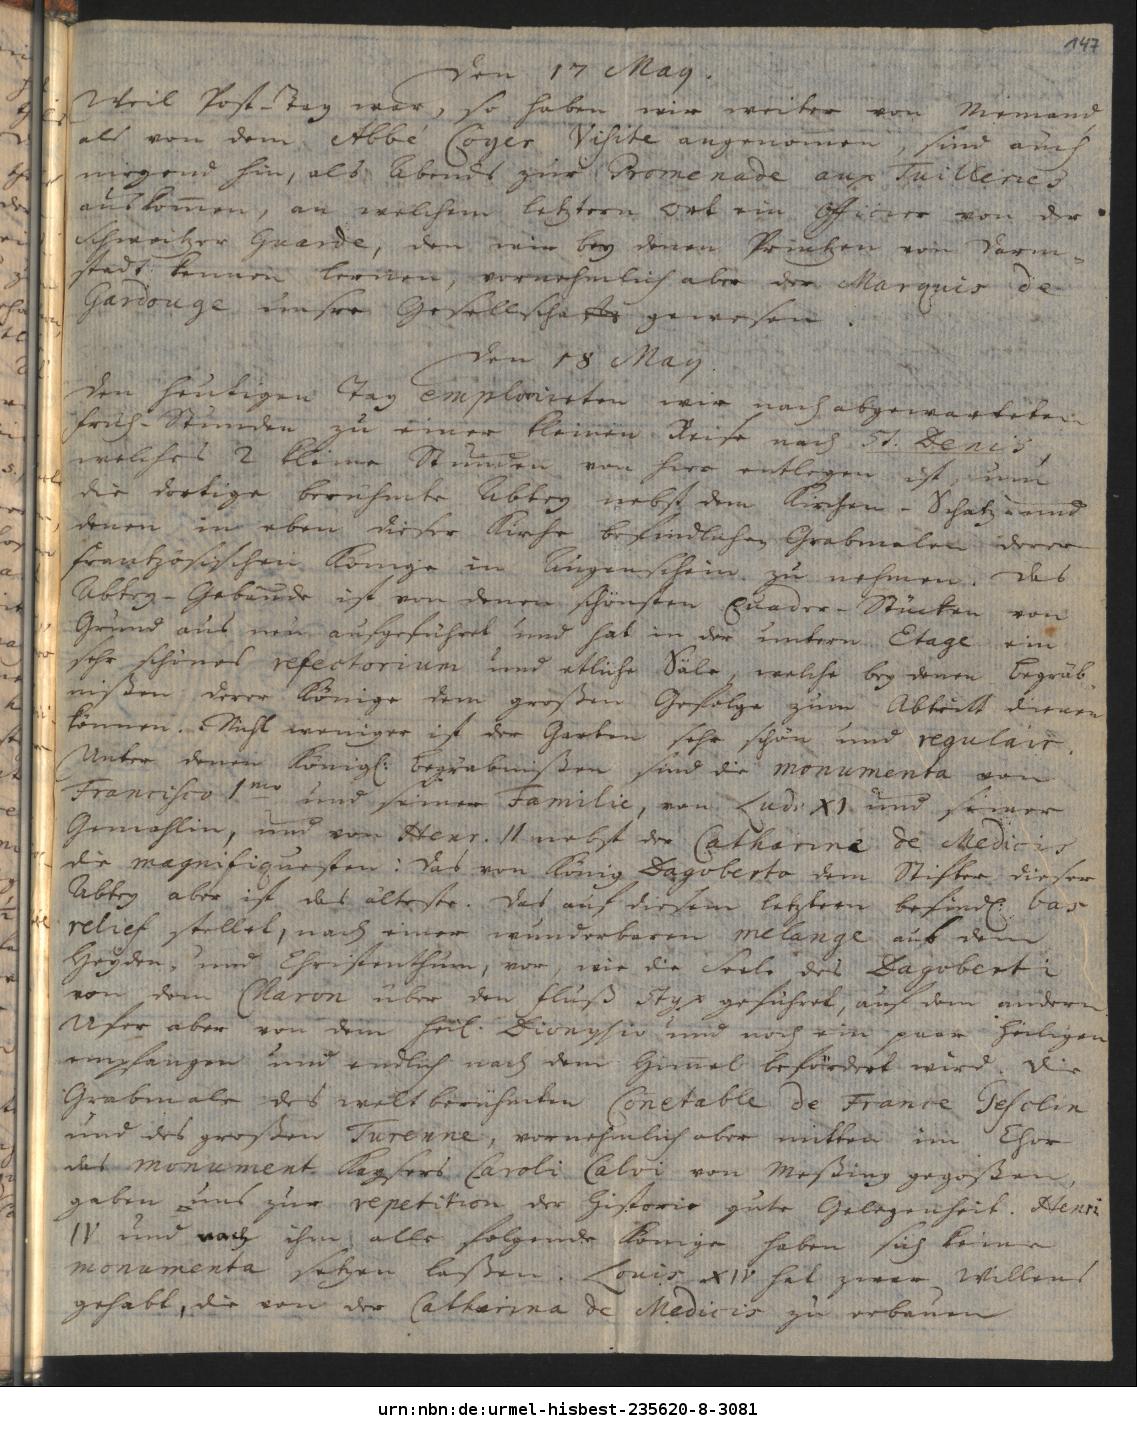 147
Den 17 May.
Weil Post-Tag war, so haben wir weiter von Niemand
als von dem Abbé Coyer Visite angenom̅en, sind auch
nirgend hin, als Abends zur Promenade aux Tuilleries
auskom̅en, an welchem letztern Ort ein Officier von der
Schweitzer Guarde, den wir bey denen Printzen von Darm-
stadt kennen lernen, vornehmlich aber der Marquis de
Gardouge unsre Gesellschafter gewesen.
Den 18 May.
Den heutigen Tag employirten wir nach abgewarteten
Früh-Stunden zu einer kleinen Reise nach St. Denis,
welches 2 kleine Stunden von hier entlegen ist, um
die dortige berühmte Abtey nebst dem Kirchen-Schatz und
denen in eben dieser Kirche befindlichen Grabmalen derer
Frantzösischen Könige in Augenschein zu nehmen. Das
Abtey-Gebäude ist von denen schönsten Quader-Stücken von
Grund aus neu aufgeführet und hat in der untern Etage ein
sehr schönes refectorium und etliche Säle, welche bey denen Begräb-
nißen derer Könige dem großen Gefolge zum Abtritt dienen
können. Nicht weniger ist der Garten sehr schön und regulair.
Unter denen Königl: Begräbnißen sind die monumenta von
Francisco 1mo und seiner Familie, von Lud: XI und seiner
Gemahlin, und von Henr. II nebst der Catharine de Medicis
die magnifiquesten: Das von König Dagoberto dem Stifter dieser
Abtey aber ist das älteste. Das auf diesem letztern befindl: bas
relief stellet, nach einer wunderbaren melange aus dem
Heyden- und Christenthum, vor, wie die Seele des Dagoberti
von dem Charon über den Fluß Styx geführet, auf dem andern
Ufer aber von dem heil. Dionysio und noch ein paar Heiligen
empfangen und endlich nach dem Him̅el befördert wird. Die
Grabmale des weltberühmten Conetable de France Gesclin
und des großen Turenne, vornehmlich aber mitten im Chor
das monument Kaysers Caroli Calvi von Meßing gegoßen,
gaben uns zur repetition der Historie gute Gelegenheit. Henri
IV und nach ihm alle folgende Könige haben sich keine
monumenta setzen laßen. Louis XIV hat zwar Willens
gehabt, die von der Catharina de Medicis zu erbauen
urn:nbn:de:urmel-hisbest-235620-8-3081